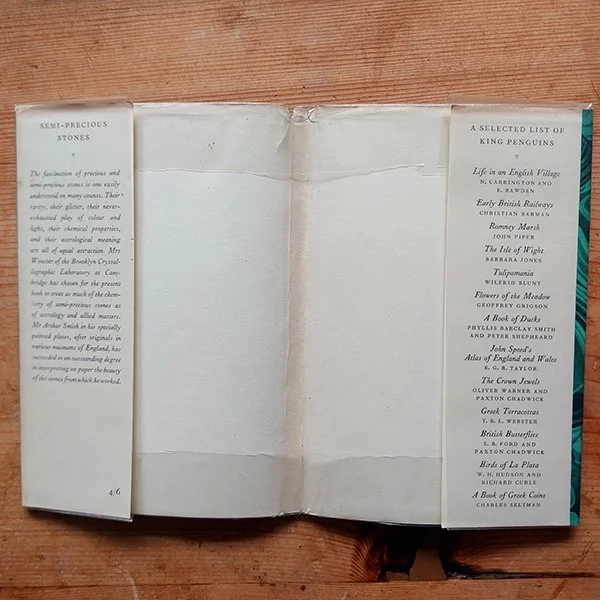 SEMI-PRECIOUS
STONES
The fascination of precious and
semi-precious stones is one easily
understood on many counts. Their
rarity, their glitter, their never-
exhausted play of colour and
light, their chemical properties,
and their astrological meaning
are all of equal attraction. Mrs
Wooster of the Brooklyn Crystal-
lographic Laboratory at Cam-
bridge has chosen for the present
book to treat as much of the chem-
istry of semi-precious stones as
of astrology and allied matters.
Mr Arthur Smith in his specially
painted plates, after originals in
various museums of England, has
succeeded to an outstanding degree
in interpreting on paper the beauty
of the stones from which he worked.
4/6
A SELECTED LIST OF
KING PENGUINS
Life in an English Village
N. CARRINGTON AND
E. BAWDEN
Early British Railways
CHRISTIAN BARMAN
Romney Marsh
JOHN PIPER
The Isle of Wight
BARBARA JONES
Tulipomania
WILFRID BLUNT
Flowers of the Meadow
GEOFFREY GRIGSON
A Book of Ducks
PHYLLIS BARCLAY SMITH
AND PETER SHEPHEARD
John Speed's
Atlas of England and Wales
E. G. R. TAYLOR
The Crown Jewels
OLIVER WARNER AND
PAXTON CHADWICK
Greek Terracottas
T. B. L. WEBSTER
British Butterflies
E. B. FORD AND
PAXTON CHADWICK
Birds of La Plata
W. H. HUDSON AND
RICHARD CURLE
A Book of Greek Coins
CHARLES SELTMAN